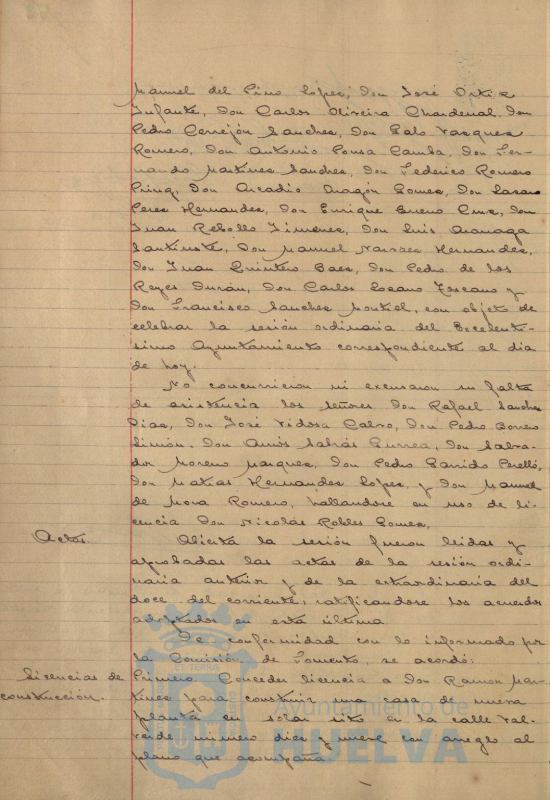 Manuel del Pino López, Don José Ortiz
Infante, Don Carlos Oliveira Chardenal, Don
Pedro Cerrejón Sanchez, Don Galo Vazquez
Romero, Don Antonio Ponsa Camba, Don Fer-
nando Martinez Sanchez, Don Federico Romero
Don Arcadio Aragón Gomez, Don Lazaro
Perez Hernandez, Don Enrique Bueno Cruz, Don
Juan Rebollo Jimenez, Don Luis
Don Manuel Narvaez Hernandez,
Don Juan Quintero Baez, Don Pedro de los
Reyes Durán, Don Carlos Lozano Toscano y
Don Francisco Sanchez Montiel, con objeto de
celebrar la sesión ordinaria del Excelenti-
simo Ayuntamiento correspondiente al dia
de hoy.
No concurrieron ni excusaron su falta
de asistencia los señores Don Rafael Sanchez
Diaz, Don José Vidosa Calvo, Don Pedro Borrero
Limón, Don Amós Sabrás Gurrea, Don Salva-
dor Moreno Marquez, Don Pedro Garrido Perelló,
Don Matías Hernandez Lopez, y Don Manuel
de Mora Romero, hallandose en uso de li-
cencia Don Nicolás Robles Gomez.
Actas. Abierta la sesión fueron leidas y
aprobadas las actas de la sesión ordi-
naria anterior y de la extraordinaria del
doce del corriente, ratificandose los acuerdos
adoptados en esta última
De conformidad con lo informado por
la Comisión de Fomento, se acordó:
Licencias de construcción. Primero. Conceder licencia a Don Ramon Mar-
tinez para construir una casa de nueva
planta en solar sito en la calle Val-
verde número diez y nueve con arreglo al
plano que acompaña.
Ayuntamiento de
HUELVA